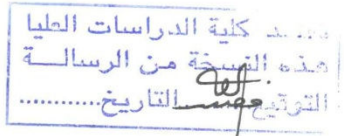 كلية الدراسات العليا
هذه النسخة من الرسالـــة
التوقيع التاريخ............